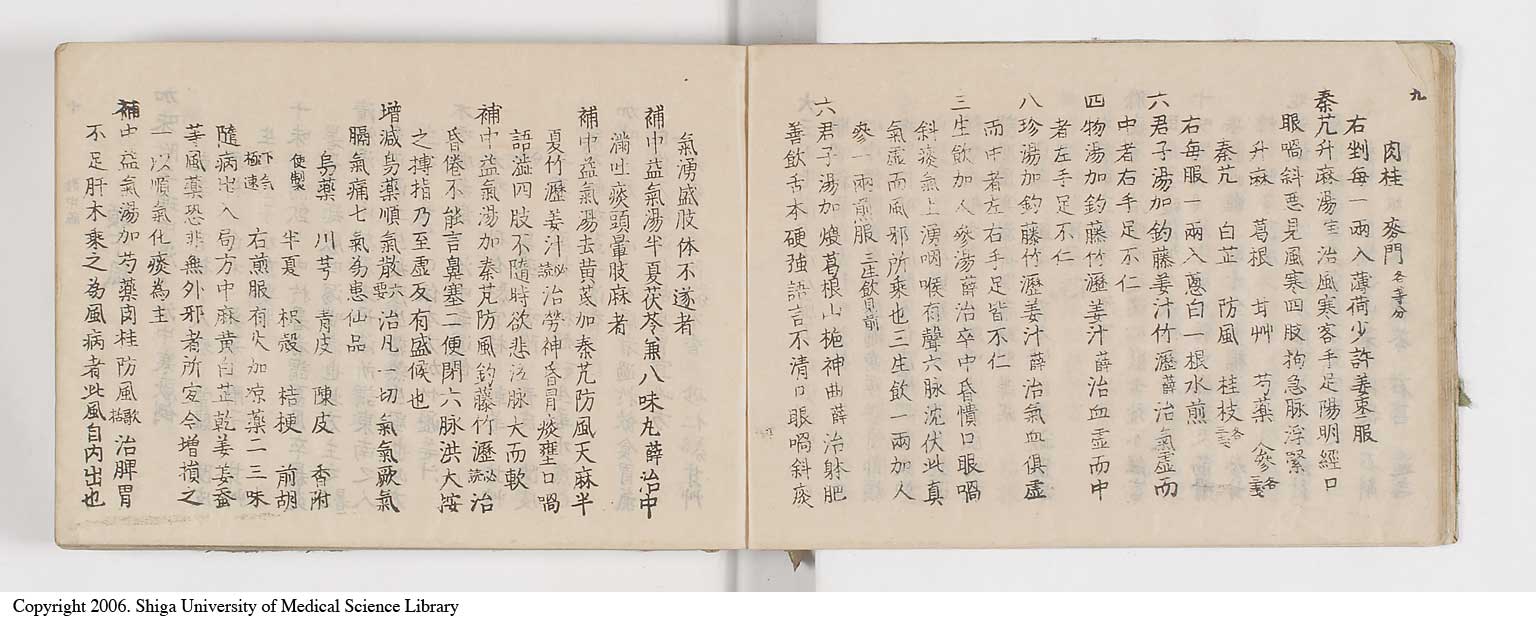 九
肉桂　麥門各等分
右剉每一兩入薄荷少許姜棗服
秦艽升麻湯　治風寒客手足陽明經口
眼喎斜惡見風寒四肢拘急脉浮緊
升麻　葛根　甘艸　芍藥　人參各三戔
秦艽　白芷　防風　桂枝各三戔
右每服一兩入蔥白一根水煎
六君子湯加鈎藤姜汁竹瀝薛治氣虛而
中者右手足不仁
四物湯加鈎藤竹瀝姜汁薛治血虛而中
者左手足不仁
八珍湯加鈎藤竹瀝姜汁薛治氣血俱虛
而中者左右手足皆不仁
三生飲加人參湯薛治卒中昏憒口眼喎
斜痰氣上湧咽喉有聲六脉沈伏此真
氣虛而風邪所乘也三生飲一兩加人
參一兩煎服三生飲見前
六君子湯加煨葛根山梔神曲薛治躰肥
善飲舌本硬強語言不清口眼喎斜痰
氣湧盛肢体不遂者
補中益氣湯半夏茯苓兼八味丸薛治中
滿吐痰頭暈肢麻者
補中益氣湯去黃芪加秦艽防風天麻半
夏竹瀝姜汁治勞神昏冒痰壅口喎
語澁四肢不隨時欲悲泣脉大而軟
補中益氣湯加秦艽防風鈎藤竹瀝治
昏倦不能言鼻塞二便閉六脉洪大按
之搏指乃至虛反有盛候也
增減烏藥順氣散治凡一切氣氣厥氣
膈氣痛七氣爲患仙品
烏藥　川芎　青皮　陳皮　香附
便製　半夏　枳殼　桔梗　前胡
下氣極速　右煎服有火加凉藥二三味
隨病出入局方中麻黃白芷乾姜姜蚕
等風藥恐非無外邪者所宜今增損之
一以順氣化痰為主
補中益氣湯加芍藥肉桂防風治脾胃
不足肝木乘之爲風病者此風自内出也
Copyright 2006. Shiga University of Medical Science Library